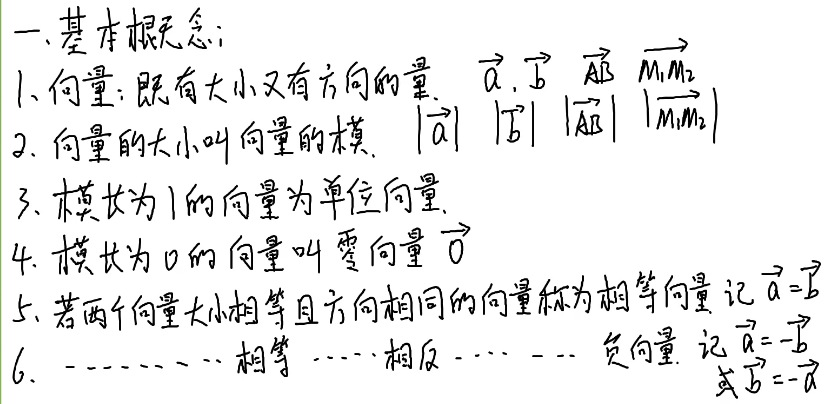 一、基本概念:
1、向量:既有大小又有方向的量. $\vec{a}$、$\vec{b}$ $\overrightarrow{AB}$ $\overrightarrow{M_1M_2}$
2、向量的大小叫向量的模. $|\vec{a}|$ $|\vec{b}|$ $|\overrightarrow{AB}|$ $|\overrightarrow{M_1M_2}|$
3、模长为1的向量为单位向量.
4、模长为0的向量叫零向量 $\vec{0}$
5、若两个向量大小相等且方向相同的向量称为相等向量 记 $\vec{a}=\vec{b}$
6、---------相等 ·····相反 ···· --- 负向量. 记 $\vec{a}=-\vec{b}$
或 $\vec{b}=-\vec{a}$